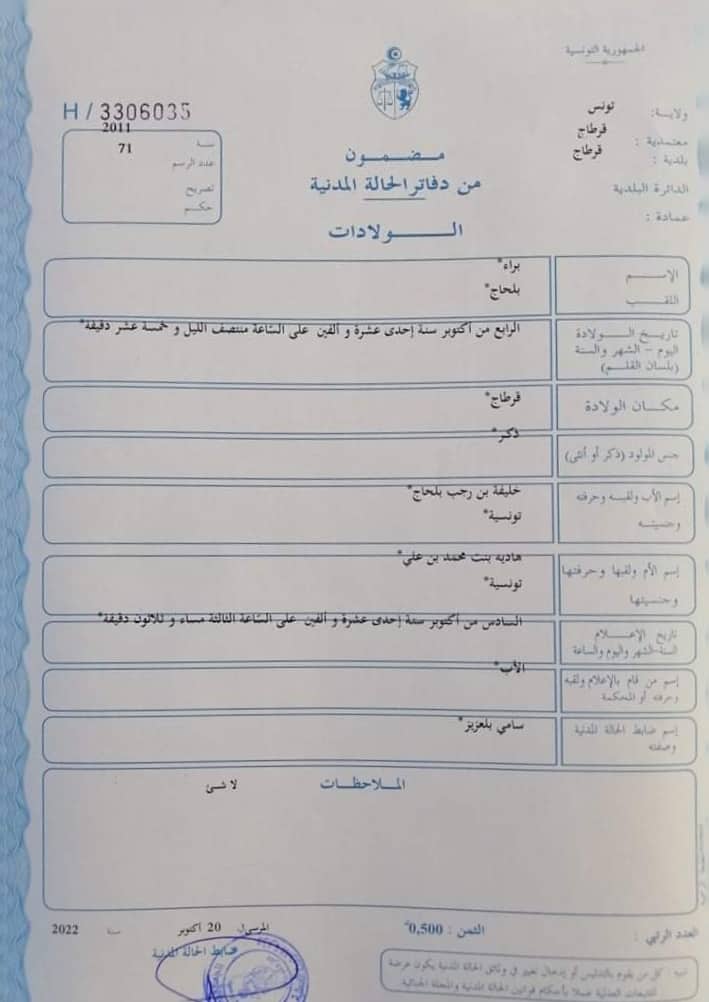 الجمهورية التونسية
ولاية: تونس
معتمدية : قرطاج
بلدية : قرطاج
الدائرة البلدية
عمادة :
H / 3306035
سنة 2011
عدد الرسم 71
تصريح
حكم
مضمون
من دفاتر الحالة المدنية
الولادات
الإسم براء*
اللقب بلحاج*
تاريخ الولادة
اليوم - الشهر والسنة
(بلسان القلم)
الرابع من أكتوبر سنة إحدى عشرة و ألفين على الساعة منتصف الليل و خمسة عشر دقيقة*
مكان الولادة قرطاج*
جنس المولود (ذكر أو أنثى) ذكر*
إسم الأب ولقبه وحرفته
وجنسيته
خليفة بن رجب بلحاج*
تونسية*
إسم الأم ولقبها وحرفتها
وجنسيتها
هادية بنت محمد بن علي*
تونسية*
تاريخ الإعلام
السنة-الشهر واليوم والساعة
السادس من أكتوبر سنة إحدى عشرة و ألفين على الساعة الثالثة مساء و ثلاثون دقيقة*
إسم من قام بالإعلام ولقبه
وحرفته أو المحكمة
الأب*
إسم ضابط الحالة المدنية
وصفته
سامي بلعزيز*
الملاحظات
لا شئ
العدد الرتبي :
الثمن : 0,500د
المرسى ل 20 أكتوبر سنة 2022
ضابط الحالة المدنية
تنبيه : كل من يقوم بالتدليس أو إدخال تغيير في وثائق الحالة المدنية يكون عرضة
للتتبعات العدلية عملا بأحكام قوانين الحالة المدنية والمجلة الجنائية.